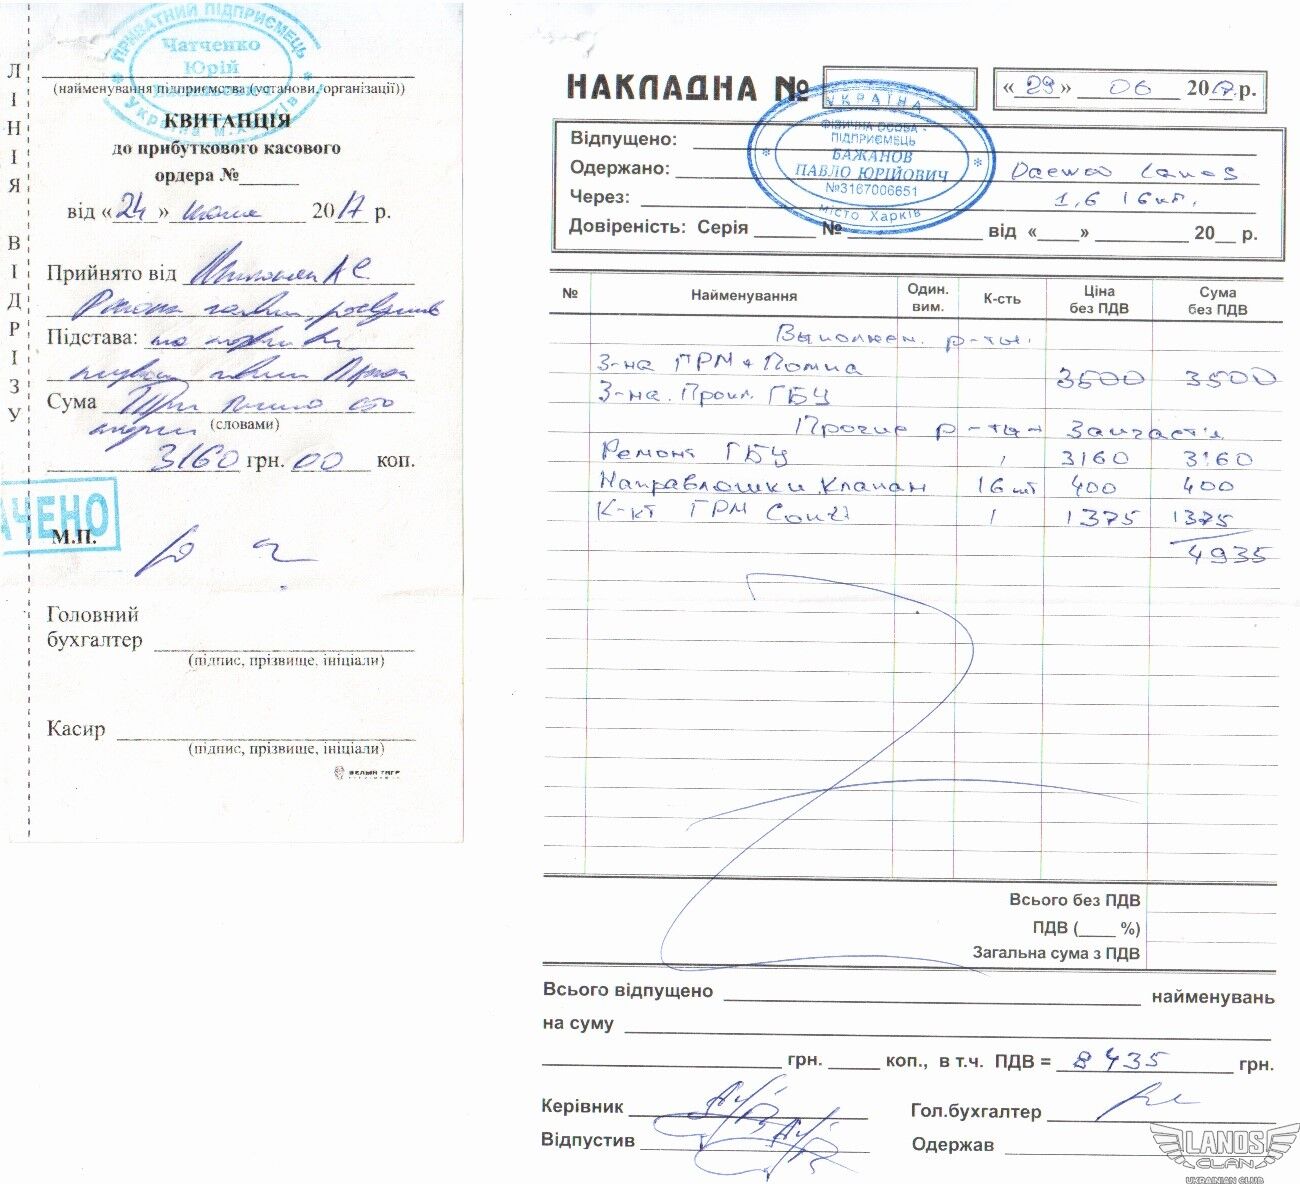 ЛІНІЯ ВІДРІЗУ
ПРИВАТНИЙ ПІДПРИЄМЕЦЬ
Чатченко
Юрій
Україна м. Харків
(найменування підприємства (установи, організації))
КВИТАНЦІЯ
до прибуткового касового
ордера №
від «24» 2017 р.
Прийнято від
Підстава:
Сума
(словами)
3160 грн. 00 коп.
АЧЕНО
М.П.
Головний
бухгалтер
(підпис, прізвище, ініціали)
Касир
(підпис, прізвище, ініціали)
БЕЛЫЙ ТИГР
НАКЛАДНА №
«29» 06 2017 р.
УКРАЇНА
ФІЗИЧНА ОСОБА -
ПІДПРИЄМЕЦЬ
БАЖАНОВ
ПАВЛО ЮРІЙОВИЧ
№3167006651
місто Харків
Відпущено:
Одержано: Daewoo Lanos
Через: 1,6 16кл.
Довіреність: Серія № від «    » 20 р.
№ Найменування Один. вим. К-сть Ціна без ПДВ Сума без ПДВ
Выполнен. р-ты.
З-на ГРМ + Помпа 3500 3500
З-на. Прокл. ГБЦ
Прочие р-ты + Запчасти
Ремонт ГБЦ 1 3160 3160
Направляшки Клапан 16 шт 400 400
К-кт ГРМ 1 1375 1375
4935
Всього без ПДВ
ПДВ (    %)
Загальна сума з ПДВ
Всього відпущено найменувань
на суму
грн. коп., в т.ч. ПДВ = 8435 грн.
Керівник Гол.бухгалтер
Відпустив Одержав
LANOS
CLAN
UKRAINIAN CLUB